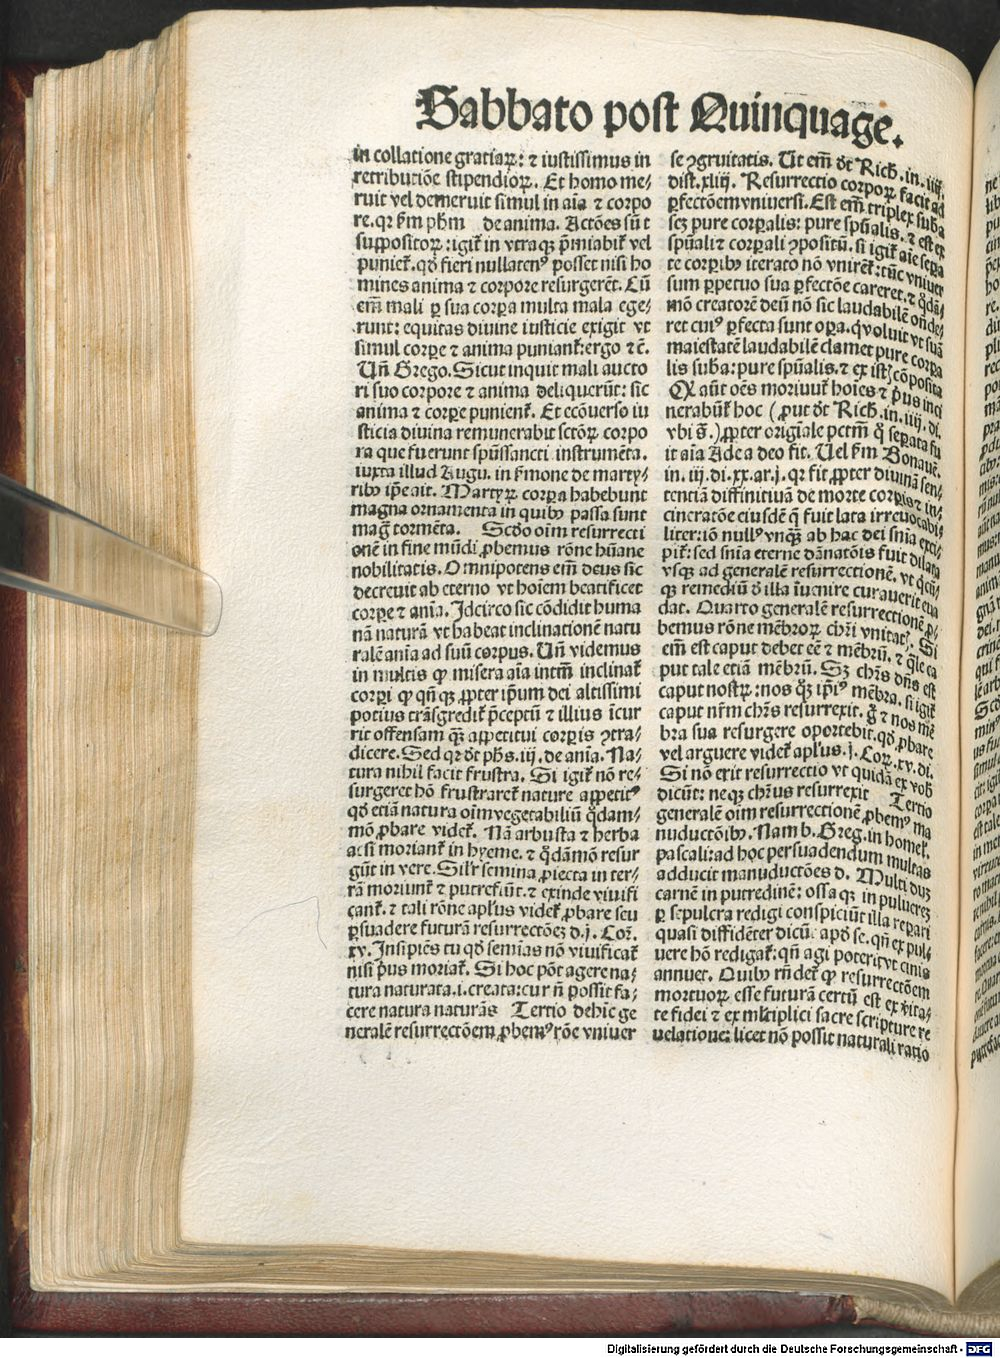 Sabbato post Quinquage.
in collatione gratiaꝝ: ⁊ iustissimus in
retributiõe stipendioꝝ. Et homo me⸗
ruit vel demeruit simul in aĩa ⁊ corpo
re. qꝛ ẜm pħm de anima. Actões sũt
suppositoꝝ: igiť in vtraqꝫ p̃miabiť vel
punieť. qđ fieri nullatenꝰ posset nisi ho
mines anima ⁊ corpore resurgerẽt. Cũ
em̃ mali ꝑ sua corꝑa multa mala ege⸗
runt: equitas diuine iusticie exigit vt
simul corꝑe ⁊ anima puniant̃: ergo ⁊ c̃.
Uñ Grego. Sicut inquit mali aucto
ri suo corpore ⁊ anima deliquerũt: sic
anima ⁊ corꝑe punient̃. Et ecõuerso iu
sticia diuina remunerabit sctõꝝ corpo
ra que fuerunt spũssancti instrumẽta.
iuxta illud Augu. in ẜmone de marty⸗
ribꝰ ip̃e ait. Martyꝝ corꝑa habebunt
magna ornamenta in quibꝰ passa sunt
mag̃ tormẽta. Scđo oĩm resurrecti
onẽ in fine mũdi ꝓbemus rõne hũane
nobilitatis. Omnipotens em̃ deus sic
decreuit ab eterno vt hoĩem beatificet
corꝑe ⁊ anĩa. Idcirco sic cõdidit huma
nã naturã vt habeat inclinationẽ natu
ralẽ anĩa ad suũ corpus. Uñ videmus
in multis ꝙ misera aĩa intm̃ inclinat̃
corꝑi ꝙ qñqꝫ ꝓpter ip̃um dei altissimi
potius trãsgredit̃ p̃ceptũ ⁊ illius ĩcur
rit offensam qꝫ̃ appetitui corꝑis ꝯtra⸗
dicere. Sed qꝛ đt pħs. iij. de anĩa. Na⸗
tura nihil facit frustra. Si igit̃ nõ re⸗
surgeret hõ frustraret̃ nature appetitꝰ
qđ etiã natura oĩm vegetabiliũ q̃dam⸗
mõ ꝓbare videt̃. Nã arbusta ⁊ herba
ac si moriant̃ in hyeme. ⁊ q̃dãmõ resur
gũt in vere. Sil̃r semina ꝓiecta in ter⸗
rã moriunt̃ ⁊ putrefiũt. ⁊ exinde viuifi
cant̃. ⁊ tali rõne apl̃us videt̃ ꝓbare seu
ꝑsuadere futurã resurrectõeꝫ d. j. Coꝝ.
xv. Insipiẽs tu qđ semĩas nõ viuificat̃
nisi p̃us moriat̃. Si hoc põt agere na⸗
tura naturata. i. creata: cur ñ possit fa⸗
cere natura naturãs Tertio dehic ge
neralẽ resurrectõem ꝓbemꝰ rõe vniuer
se ꝯgruitatis. Ut em̃ đt Rich̃. in. iiij.
dist. xliij. Resurrectio corpoꝝ facit ad
ꝑfectõem vniuersi. Est em̃ triplex suba
scꝫ pure corꝑalis: pure spũalis. ⁊ est ex
spũali ⁊ corꝑali ꝯpositũ. si igit̃ aĩe sepa
te corꝑibꝰ iterato nõ vnirẽt̃: tũc vniuer
sum perpetuo sua ꝑfectõe careret. ⁊ q̃dã⸗
mõ creatorẽ deũ nõ sic laudabilẽ oñde⸗
ret cuiꝰ ꝑfecta sunt oꝑa. qꝛ voluit vt suã
maiestatẽ laudabilẽ clamet pure corꝑa
lis suba: pure spũalis. ⁊ ex istꝭ cõposita
Qꝛ aũt oẽs moriunt̃ hoĩes ⁊ p̃us inci
nerabũt̃ hoc (ꝓut đt Rich̃. in. iiij. di.
vbi s̃.) ꝓpter origĩale pctm̃ q̃ seꝑata fu
it aĩa Ade a deo fit. Uel ẜm Bonauẽ.
in. iij. di. xx. ar. j. qꝛ fit ꝓpter diuinã sen⸗
tentiã diffinitiuã de morte corꝑis ⁊ in⸗
cineratõe eiusdẽ q̃ fuit lata irreuocabi⸗
liter: iõ nullꝰ vnqꝫ̃ ab hac dei sñia exci⸗
pit̃: sed sñia eterne dãnatõis fuit dilata
vsqꝫ ad generalẽ resurrectionẽ. vt q̃cũ⸗
qꝫ remediũ đ illa ĩuenire curauerit eua
dat. Quarto generalẽ resurrectionẽ ꝓ⸗
bemus rõne mẽbroꝝ chr̃i vnitatꝭ. Si
em̃ est caput debet eẽ ⁊ mẽbrũ. ⁊ q̃le ca
put tale etiã mẽbrũ. Sꝫ chr̃s dñs est
caput nostꝝ: nos qꝫ̃ ip̃iꝰ mẽbra. si igit̃
caput nr̃m chr̃s resurrexit. g̃ ⁊ nos mẽ
bra sua resurgere oportebit. qđ ꝓbare
vel arguere videt̃ apl̃us. j. Coꝝ. xv. di.
Si nõ erit resurrectio vt quidã ex vob̃
dicũt: neqꝫ chr̃us resurrexit Tertio
generalẽ oĩm resurrectionẽ ꝓbemꝰ ma
nuductõibꝰ. Nam b. Greg. in homel̃.
pascali: ad hoc persuadendum multas
adducit manuductões d. Multi duꝫ
carnẽ in putredinẽ: ossaqꝫ in puluereꝫ
ꝑ sepulcra redigi conspiciũt illa reꝑari
quasi diffidẽter dicũt apđ se. qñ ex pul⸗
uere hõ redigat̃: qñ agi poterit vt cinis
annuet. Quibꝰ rñdet̃ ꝙ resurrectõem
mortuoꝝ esse futurã certũ est ex v̾ita⸗
te fidei ⁊ ex ml̃tiplici sacre scripture re
uelatione: licet nõ possit naturali ratio
Digitalisierung gefördert durch die Deutsche Forschungsgemeinschaft - DFG